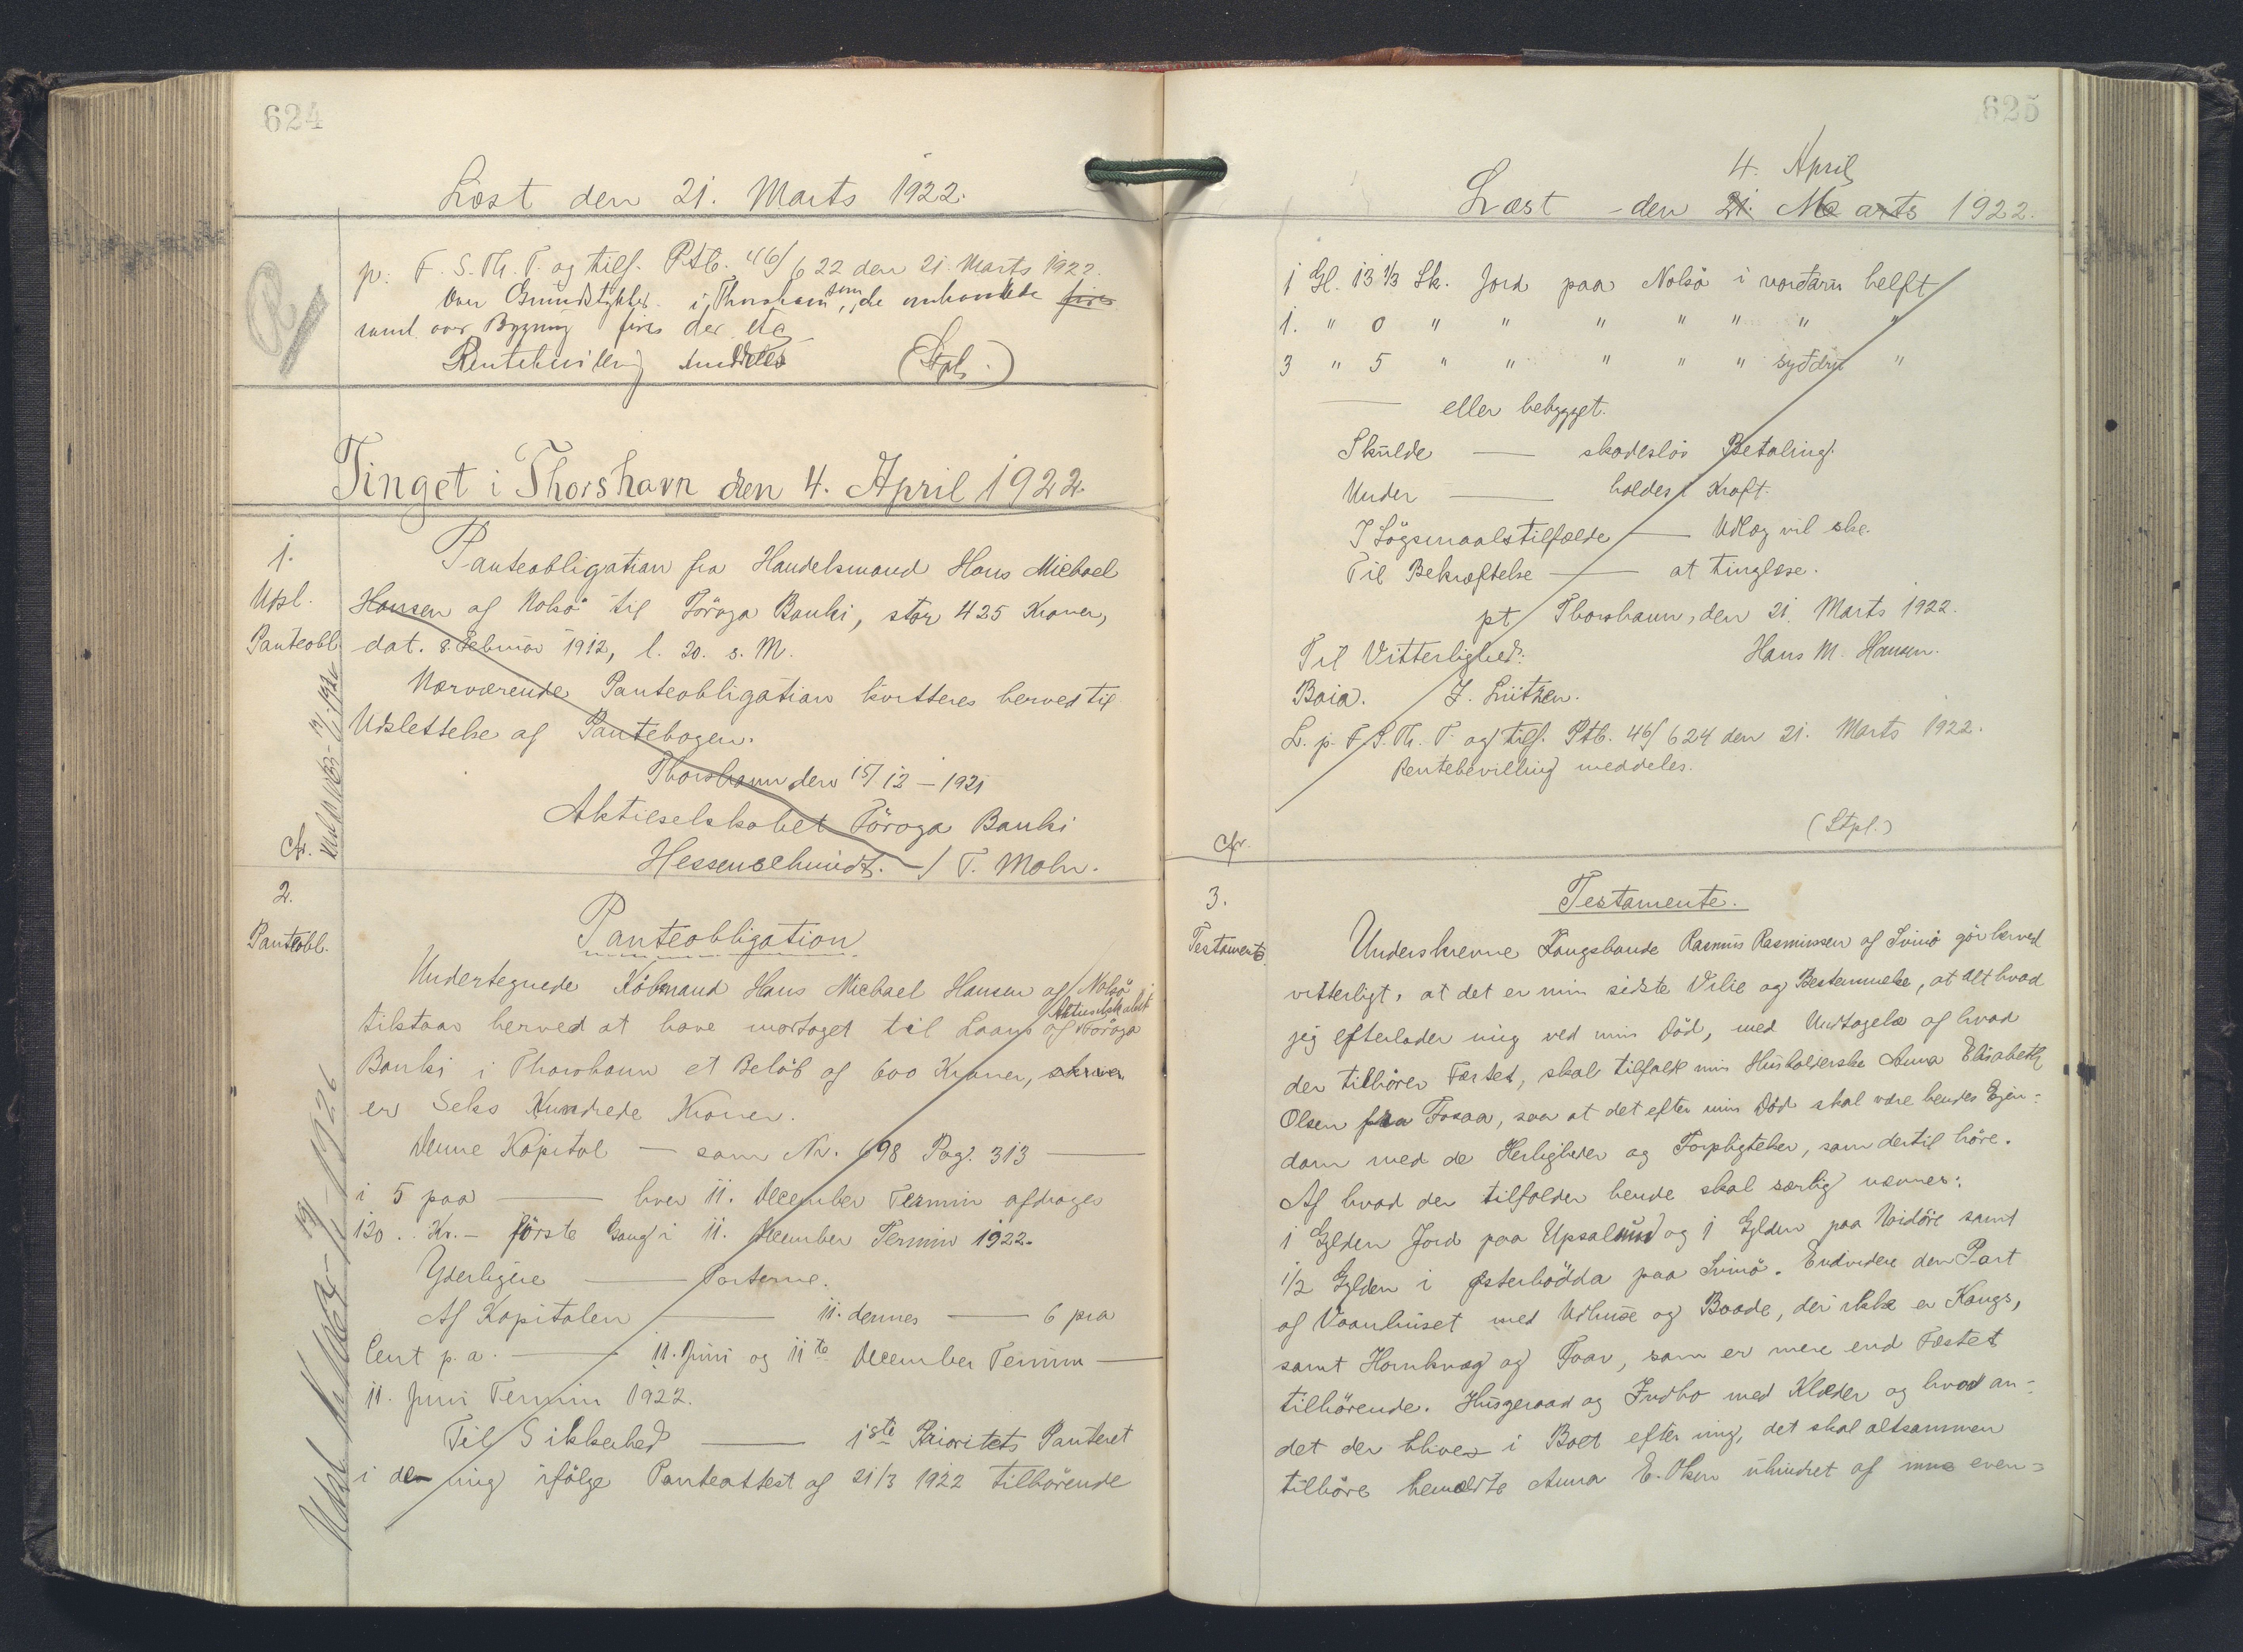 624
Læst den 21. Marts 1922.
p. F. S. Th. P. og tilf. Ptb. 46/622 den 21 Marts 1922.
Over Grundstykket i Thorshavn, som de omhandlede fires
samt over Bygning fires der etc
Rentebevilling meddeles (Stpl.)
R
Tinget i Thorshavn den 4. April 1922.
1.
Udsl.
Panteobl.
Panteobligation fra Handelsmand Hans Michael
Hansen af Nolsö til Föroya Banki, stor 425 Kroner,
dat. 8. Februar 1912, l. 20. s. M.
Nærværende Panteobligation kvitteres herved til
Udslettelse af Pantebogen.
Thorshavn den 15/12 - 1921
Aktieselskabet Föroya Banki
Hessenschmidt. / T. Mohr.
Afr.
2.
Panteobl.
Panteobligation
Undertegnede Købmand Hans Michael Hansen af Nolsö
tilstaar herved at have modtaget til Laans af Aktieselskabet Föroya
Banki i Thorshavn et Beløb af 600 Kroner, skriver
er Seks Hundrede Kroner.
Denne Kapital — som Nr. 698 Pag. 313 —
i 5 paa — hver 11. December Termin afdrages
120 .. Kr. - første Gang i 11. December Termin 1922.
Yderligere — Parterne.
Af Kapitalen — 11. dennes — 6 pra
Cent p. a. — 11. Juni og 11te December Termin —
11. Juni Termin 1922.
Til Sikkerhed — 1ste Prioritets Panteret
i de mig ifølge Panteattest af 21/3 1922 tilhørende
625
4. April
Læst den 21. Marts 1922.
1 Gl. 13 1/3 Sk. Jord paa Nolsö i nordaru helft
1. " 0 " " " " " " "
3 " 5 " " " " " sydaru "
— eller bebygget.
Skulde — skadesløs Betaling.
Under — holdes i Kraft.
I Søgsmaalstilfælde — Udlæg vil ske.
Til Bekræftelse — at tinglæse.
pt Thorshavn, den 21. Marts 1922.
Til Vitterlighed: Hans M. Hansen.
Baia. J. Lützen.
L. p. F. S. Th. P. og tilf. Ptb. 46/624 den 21. Marts 1922.
Rentebevilling meddeles.
(Stpl.)
Afr.
3.
Testamente.
Testamente.
Underskrevne Kongsbonde Rasmus Rasmussen af Svinö gør herved
vitterligt, at det er min sidste Vilie og Bestemmelse, at Alt hvad
jeg efterlader mig ved min Död, med Undtagelse af hvad
der tilhører Fæstet, skal tilfalde min Husholderske Anna Elisabeth
Olsen fra Fossaa, saa at det efter min Död skal være hendes Ejen=
dom med de Herligheder og Forpligtelser, som dertil höre.
Af hvad der tilfalder hende skal særlig nævnes:
1 Gylden Jord paa Upsalund og 1 Gylden paa Vidöre samt
1/2 Gylden i Østerbödda paa Svinö. Endvidere den Part
af Vaanhuset med Udhuse og Baade, der ikke er Kongs,
samt Hornkvæg og Faar, som er mere end Fæstet
tilhörende. Husgeraad og Indbo med Klæder og hvad an=
det der bliver i Boet efter mig, det skal altsammen
tilhöre bemeldte Anna E. Olsen uhindret af mine even=